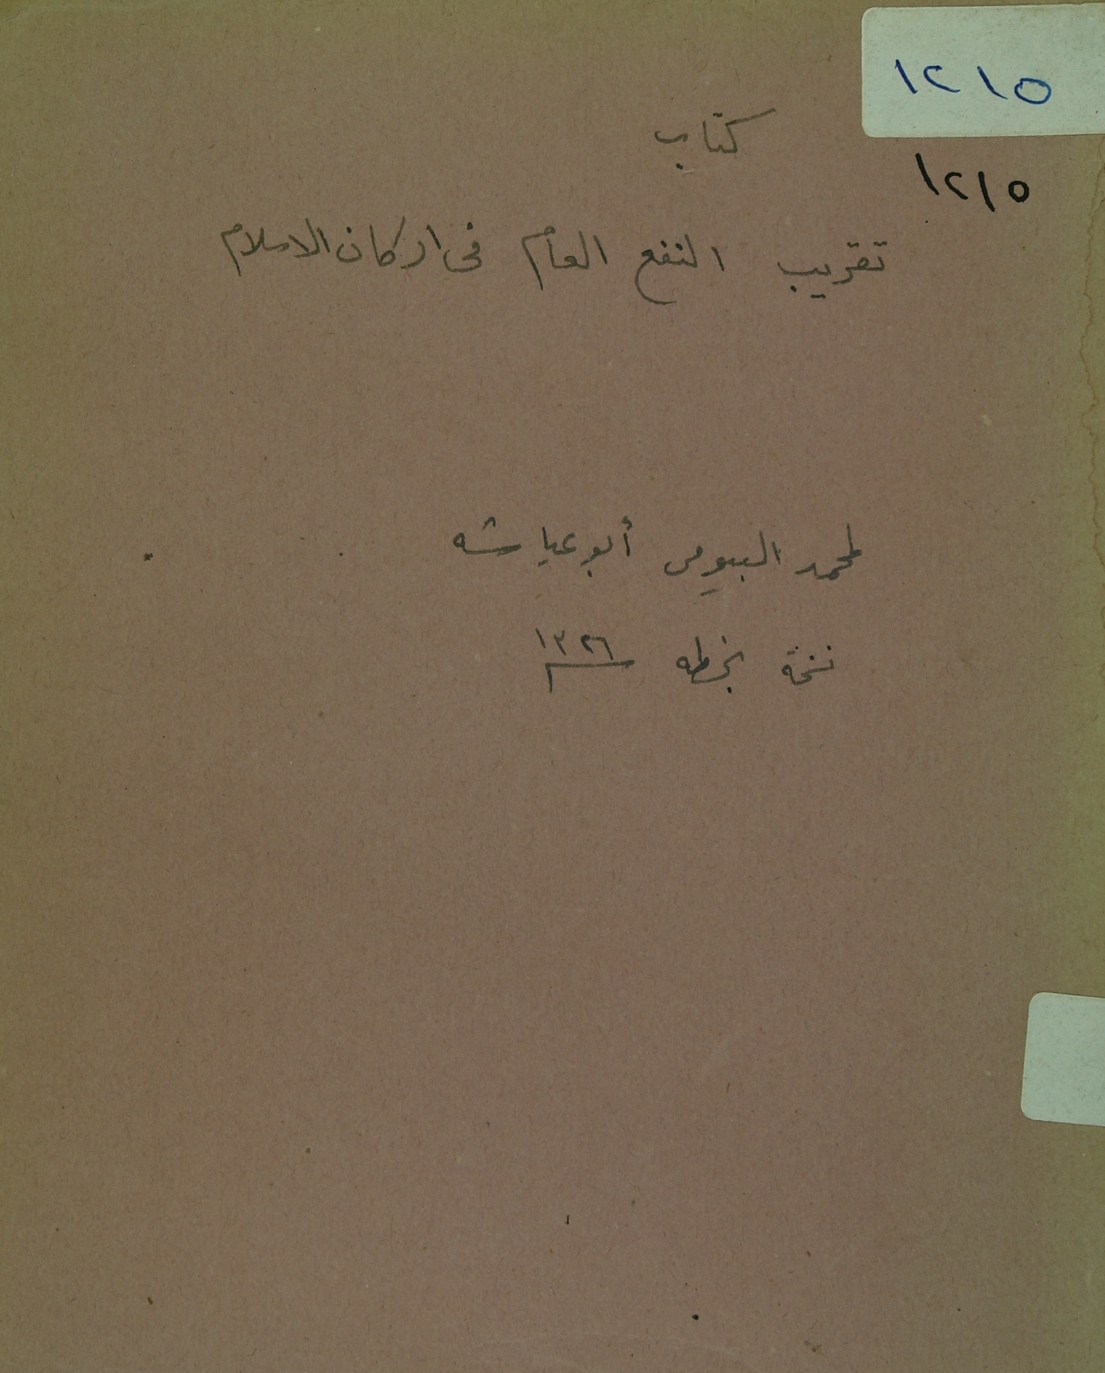 ١٢١٥
كتاب
١٢١٥
تقريب النفع العام فى اركان الاسلام
لمحمد البيومى أبو عياشه
نسخة بخطه ١٣٢٦